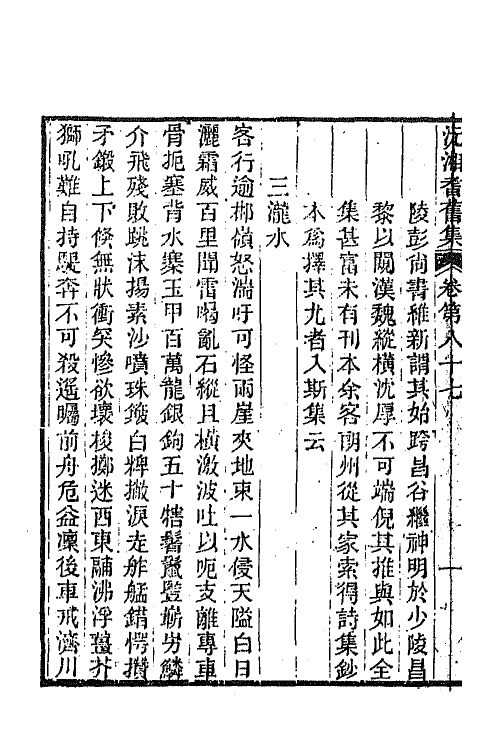 沅湘耆舊集 卷第八十七 一
陵彭尙書維新謂其始跨昌谷繼神明於少陵昌
黎以闚漢魏縱橫沈厚不可端倪其推與如此全
集甚富未有刊本余客朗州從其家索得詩集鈔
本爲擇其尤者入斯集云
三瀧水
客行逾郴嶺怒湍吁可怪兩崖夾地束一水侵天隘白日
灑霜威百里聞雷喝亂石縱且橫激波吐以呃支離專車
骨扼塞背水寨玉甲百萬龍銀鉤五十犗鬐鬣豎嶄岃鱗
介飛殘敗跳沫揚素沙噴珠鎩白粺撇淚走舴艋錯愕攢
矛鍛上下倐無狀衝突慘欲壞梭擲迷西東鬴沸浮薑芥
獅吼難自持駃奔不可殺遥矚前舟危益凜後車戒濟川